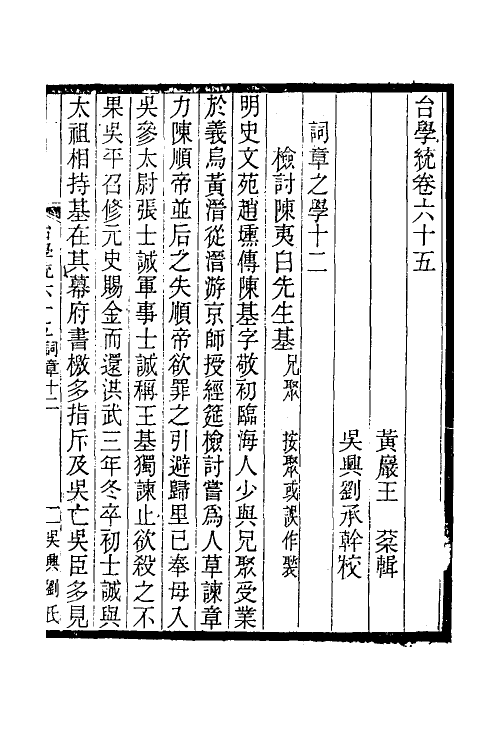 台學統卷六十五
黃巖王 棻輯
吳興劉承幹校
詞章之學十二
檢討陳夷白先生基 兄聚 按聚或誤作裝
明史文苑趙壎傳陳基字敬初臨海人少與兄聚受業
於義烏黃溍從溍游京師授經筵檢討嘗爲人草諫章
力陳順帝並后之失順帝欲罪之引避歸里已奉母入
吳參太尉張士誠軍事士誠稱王基獨諫止欲殺之不
果吳平召修元史賜金而還洪武三年冬卒初士誠與
太祖相持基在其幕府書檄多指斥及吳亡吳臣多見
台學統六十五 詞章十二 一 吳興劉氏